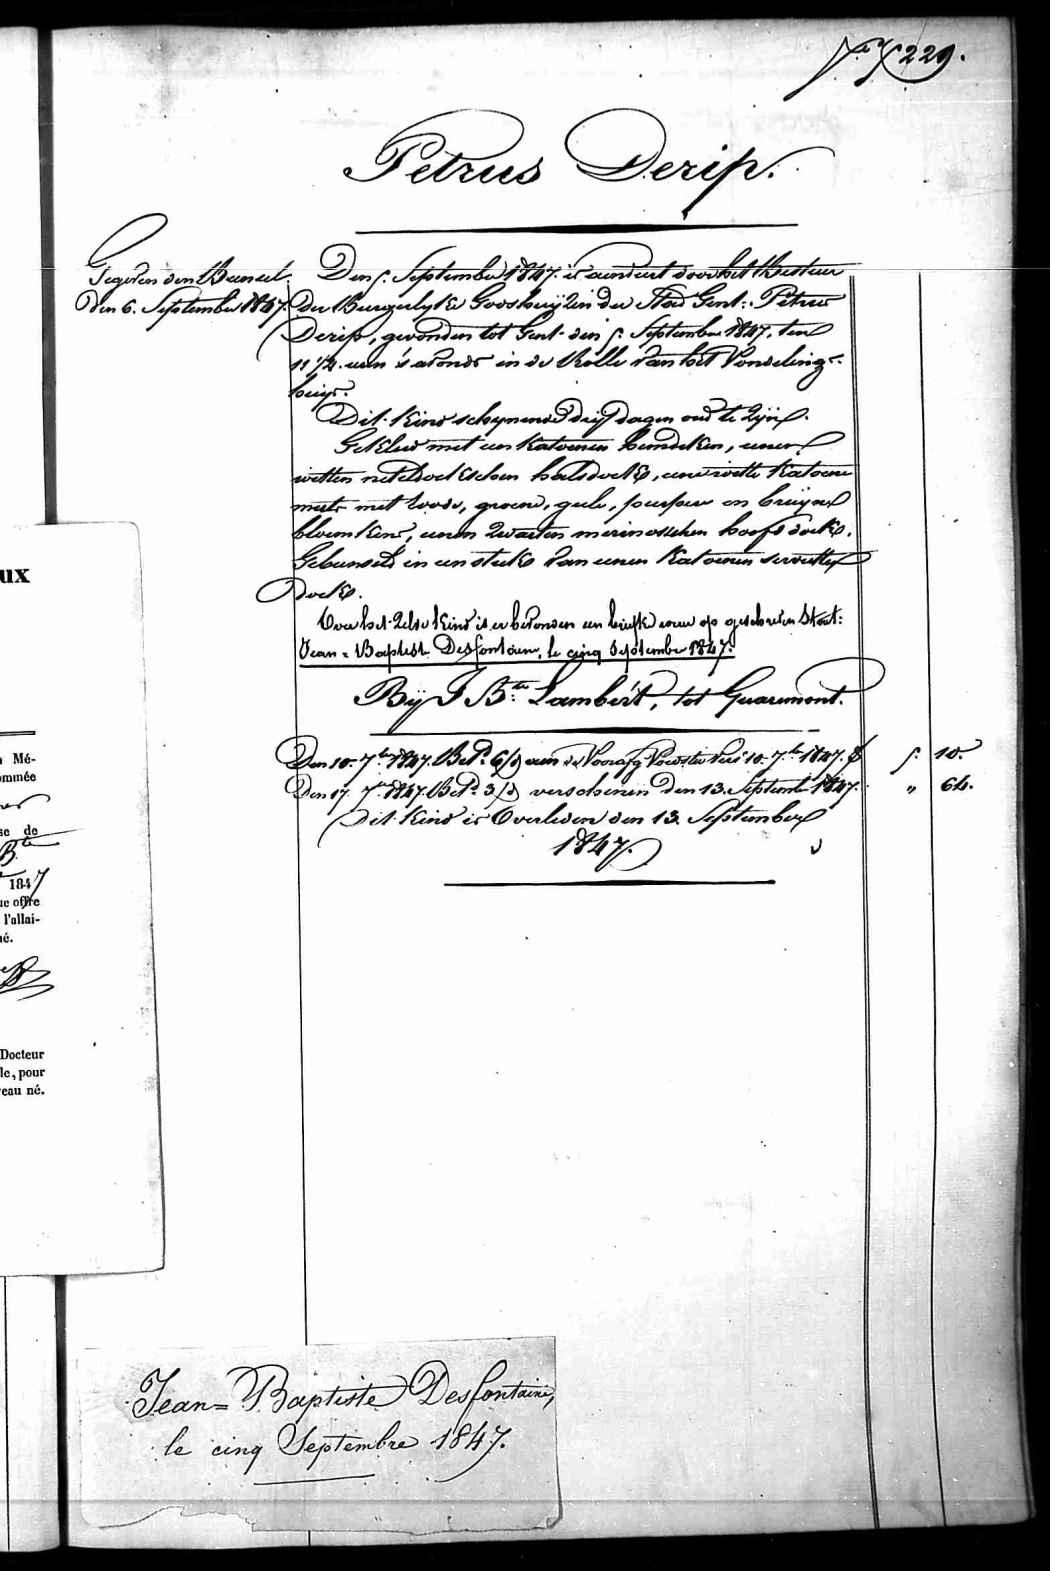 229.
Petrus Derip.
Gegeven den Bundel
den 6. September 1847.
Den 5. September 1847. is aenveert door het Bestuer
der Burgerlyke Godshuyzen der Stad Gent: Petrus
Derip, gevonden tot Gent den 5. September 1847, ten
11 1/2. uren 's avonds in de Rolle van het Vondeling-
huys.
Dit kind schynende dry dagen oud te zyn.
Gekleed met een katoenen hemdeken, eenen
witten neteldoekschen halsdoek, eene witte katoene
muts met roode, groene, gele, purpere en bruyne
bloemkens, eenen zwarten merinosschen hoofddoek.
Gebunseld in een stuk van eenen katoenen servetten
doek.
Over het zelve kind is er bevonden een briefke waer op geschreven staet:
Jean=Baptist Desfontaine, le cinq Septembre 1847.
By J Bte Lambert, tot Quaremont.
Den 10. 7bre 1847. Betd 6/d aen de Voorafg Voedster vers 10. 7bre 1847. f 5. 10.
Den 17. 7bre 1847. Betd 3/d verschenen den 13. September 1847. " 64.
Dit kind is Overleden den 13. September
1847.
ux
Mé-
ommée
se de
Bte
1847
ue offre
l'allai-
né.
Docteur
le, pour
veau né.
Jean=Baptiste Desfontaine,
le cinq Septembre 1847.